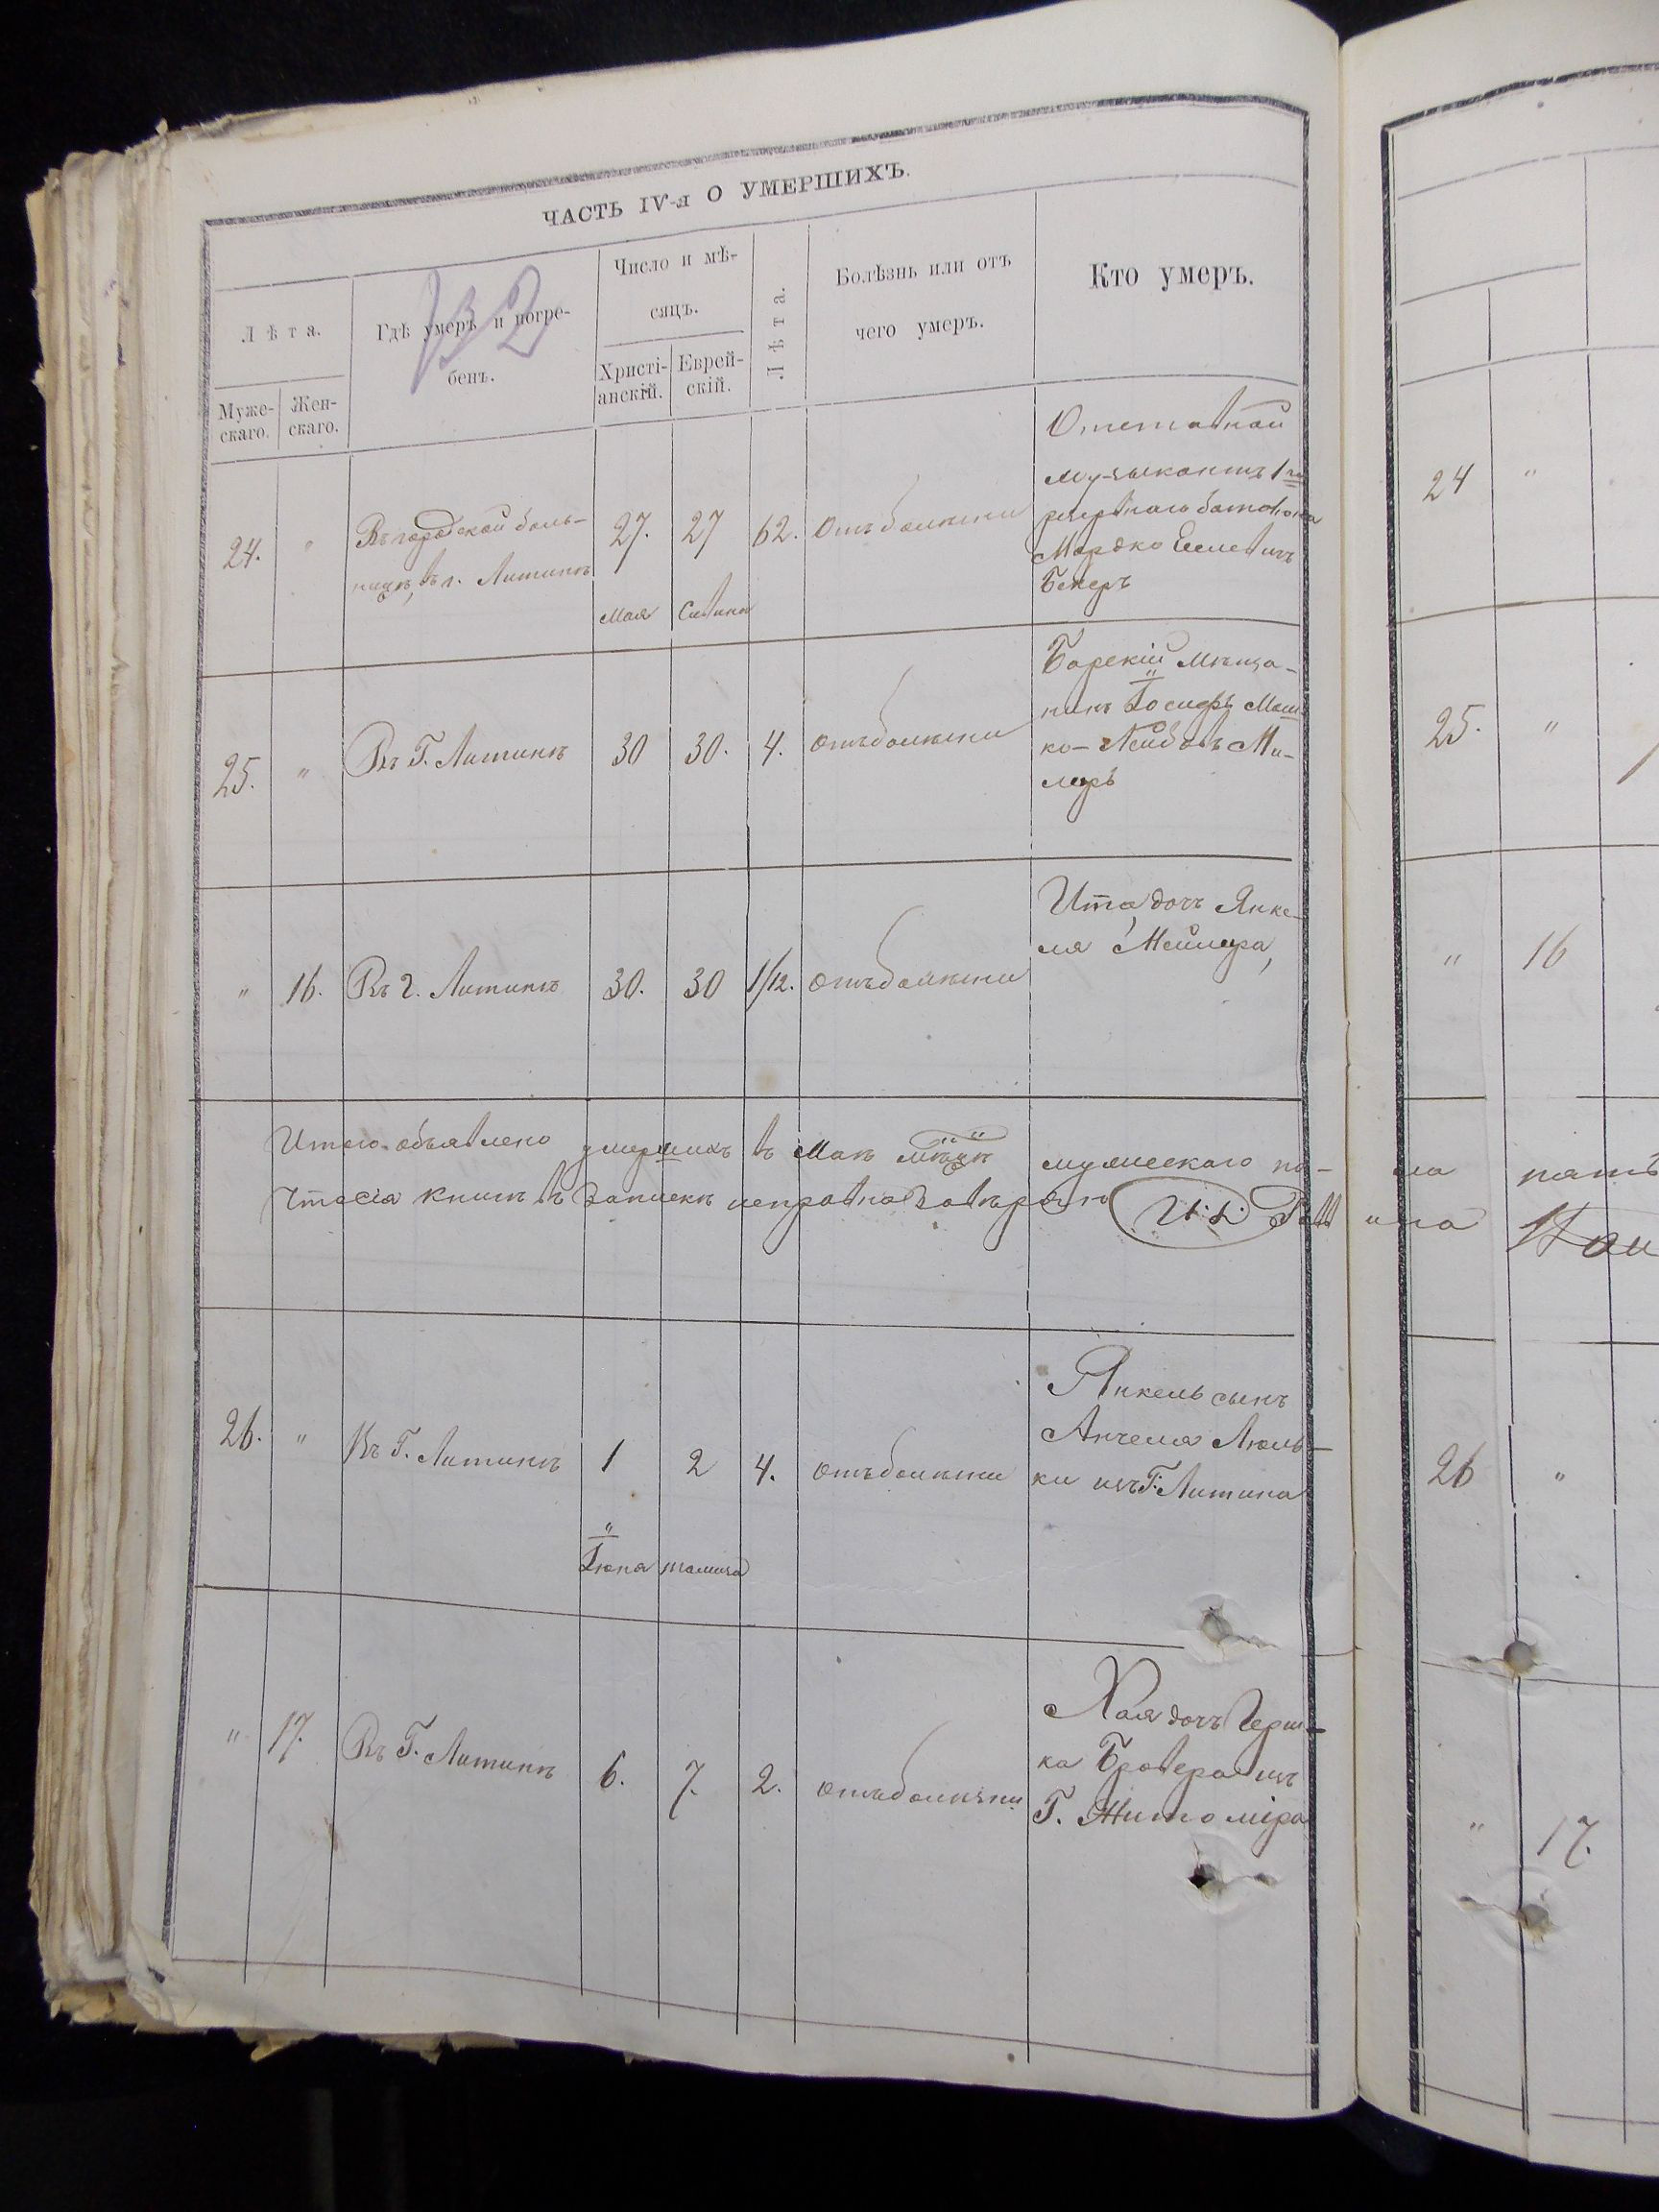 ЧАСТЬ IV-я О УМЕРШИХЪ.
Лѣта.
Муже-
скаго.
Жен-
скаго.
Гдѣ умеръ и погре-
бенъ.
Число и мѣ-
сяцъ.
Христі-
анскій.
Еврей-
скій.
Лѣта.
Болѣзнь или отъ
чего умеръ.
Кто умеръ.
24. "
Въ городской боль-
ницѣ, въ г. Литинѣ
27.
Мая
27
Сивина
62.
Отъ болѣзни
Отставной
музыкантъ 1го
резервного баталіона
Мордко
Бекеръ
25. "
Въ Г. Литинѣ
30
30.
4.
отъ болѣзни
Барскій мѣща-
нинъ Іосифъ Мош
ко-Лейбовъ Ми-
леръ
" 16.
Въ г. Литинѣ
30.
30
1/12.
отъ болѣзни
Ита, дочь Янке-
ля Мейлера,
Итого объявлено умершихъ въ Маѣ мѣцѣ мужескаго по-
книгъ въ запискѣ исправна завѣряю И.Д. Равв
26. "
Въ Г. Литинѣ
1
Іюня
2
тамуза
4.
отъ болѣзни
Янкель сынъ
Анчеля Люль-
ки изъ Г. Литина
" 17.
Въ Г. Литинѣ
6.
7.
2.
отъ болѣзни
Хая дочь Герш-
ка Бровера изъ
Г. Житоміра
24 "
25. "
" 16
ла пять
ина
26 "
" 17.